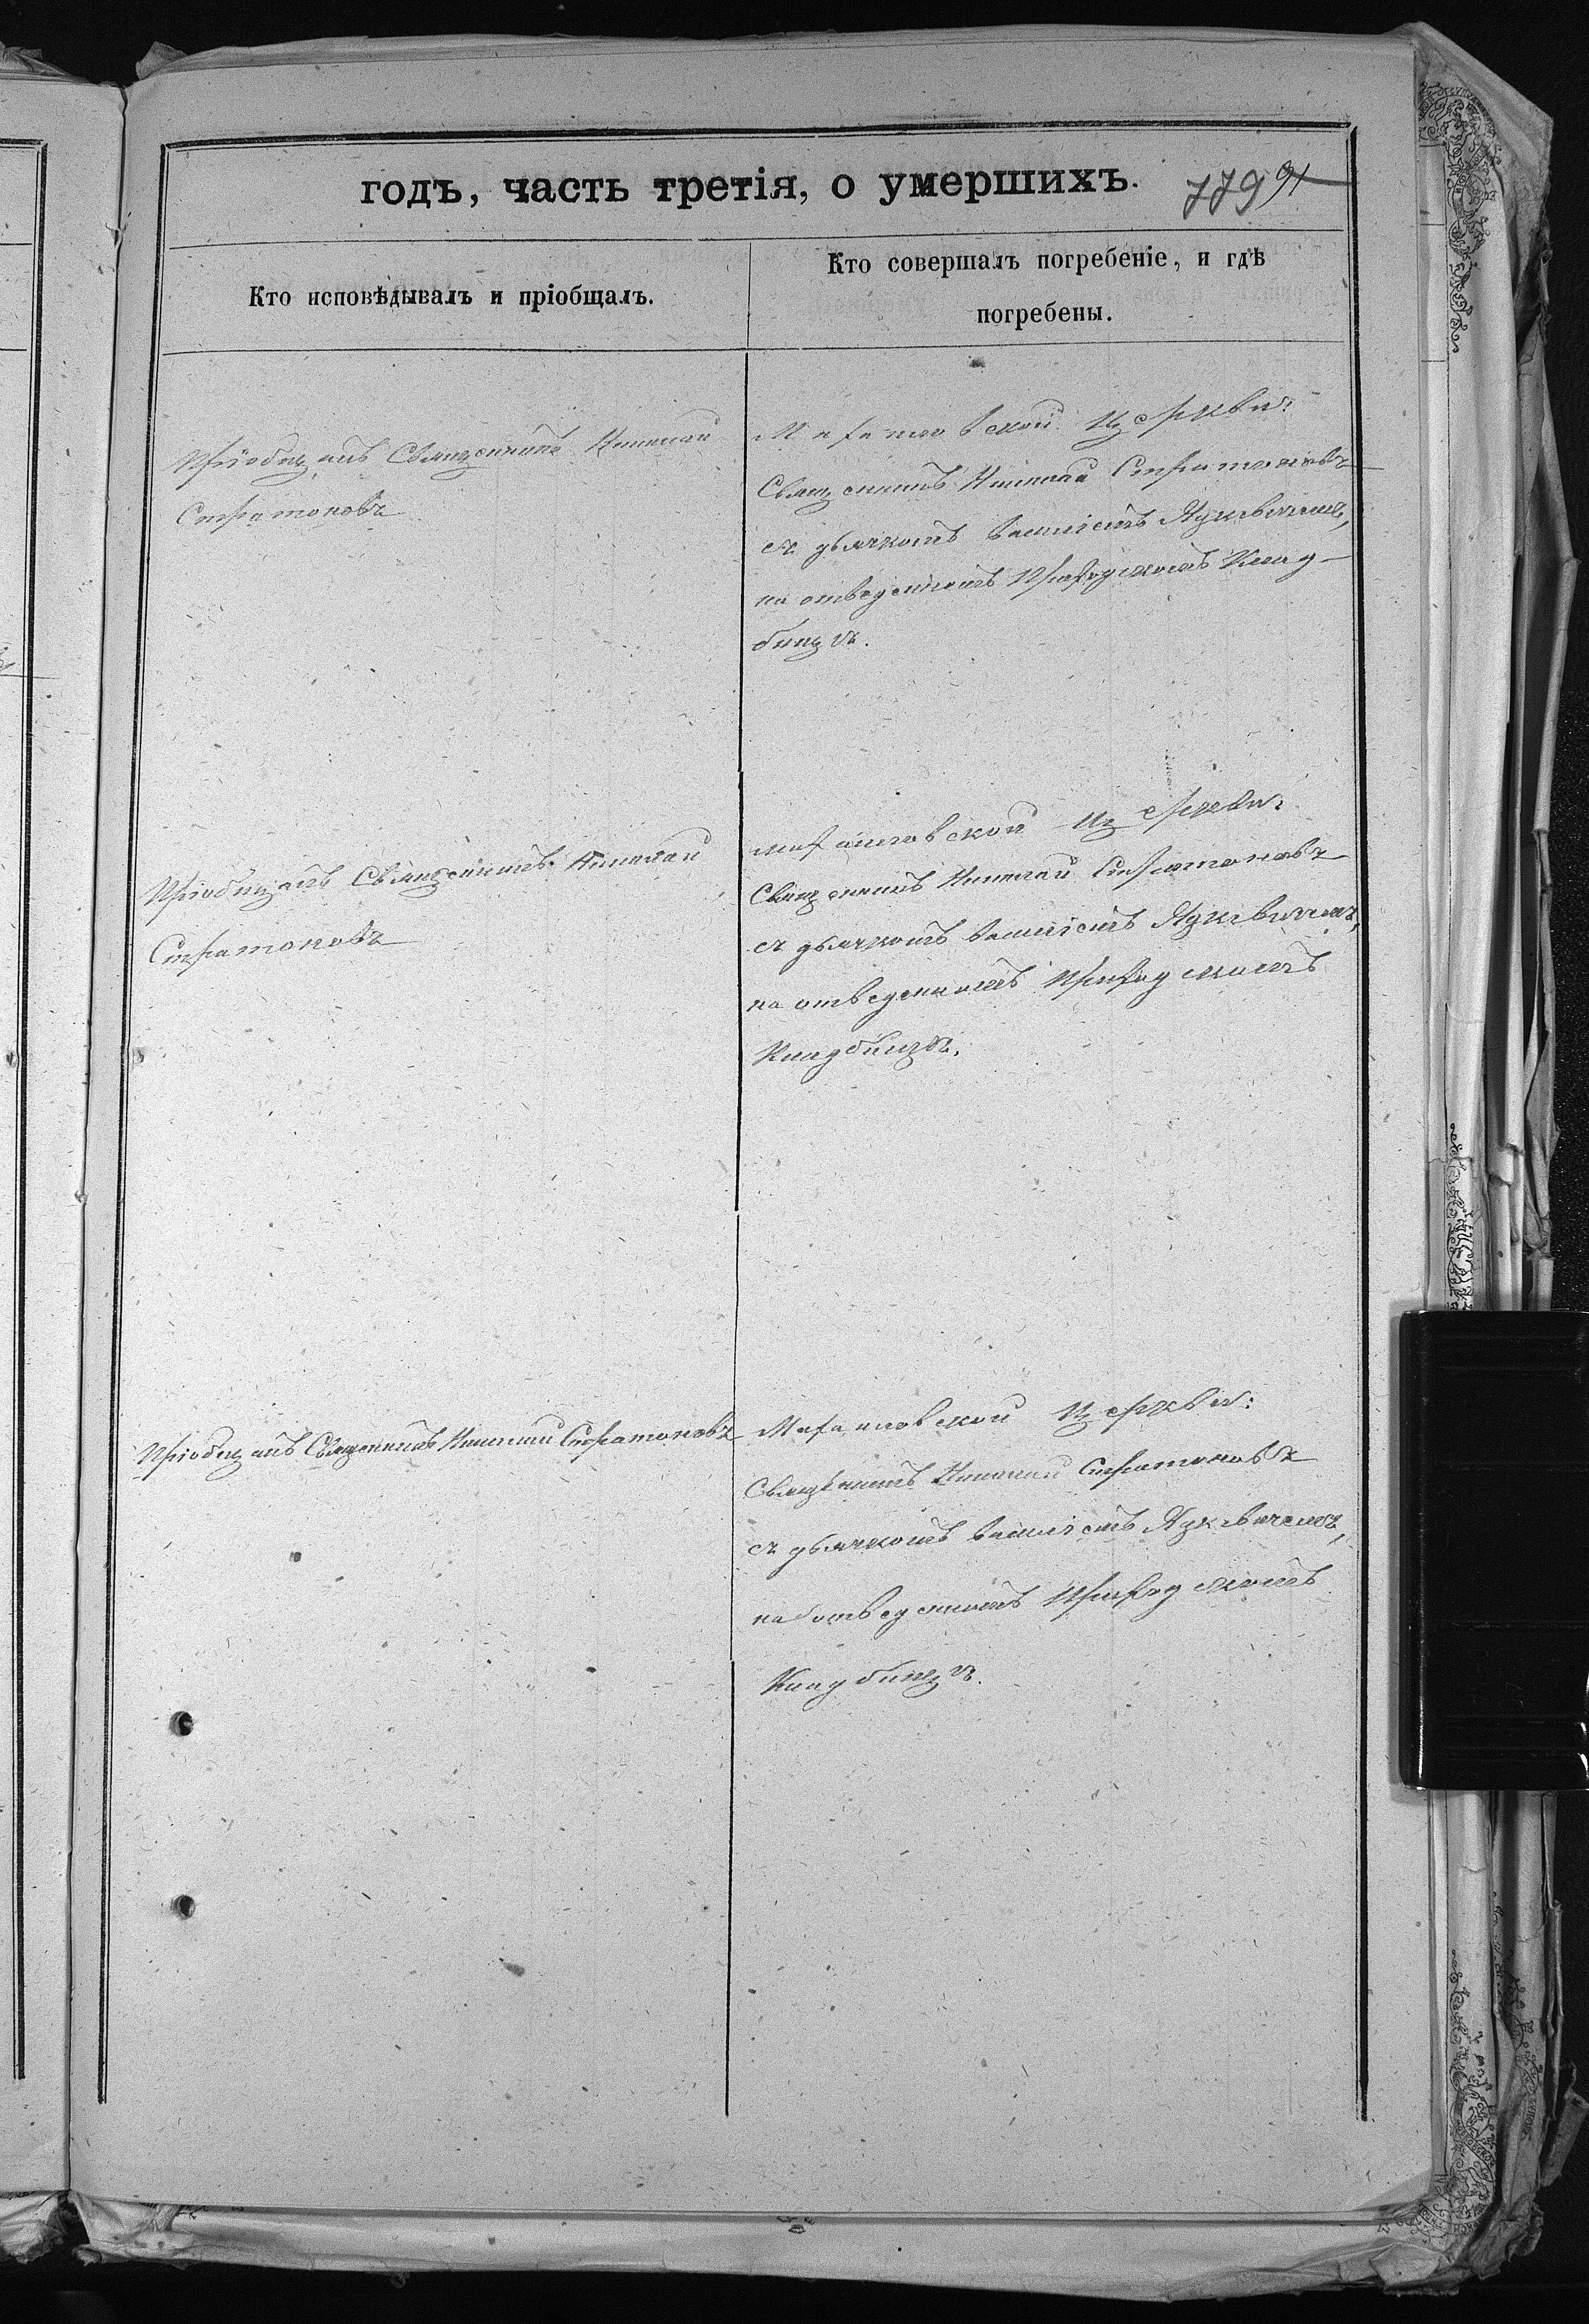 годъ, часть третія, о умершихъ.
779 91
Кто исповѣдывалъ и пріобщалъ.
Кто совершалъ погребеніе, и гдѣ
погребены.
Пріобщалъ Священникъ Николай
Стратоновъ
церкви:
Священникъ Николай Стратоновъ
съ дьячкомъ
на отведенномъ Приходскомъ Клад-
бищѣ.
Пріобщалъ Священникъ Николай
Стратоновъ
церкви:
Священникъ Николай Стратоновъ
съ дьячкомъ
на отведенномъ Приходскомъ
Кладбищѣ.
Пріобщалъ Священникъ Николай Стратоновъ
церкви:
Священникъ Николай Стратоновъ
съ дьячкомъ
на отведенномъ Приходскомъ
Кладбищѣ.